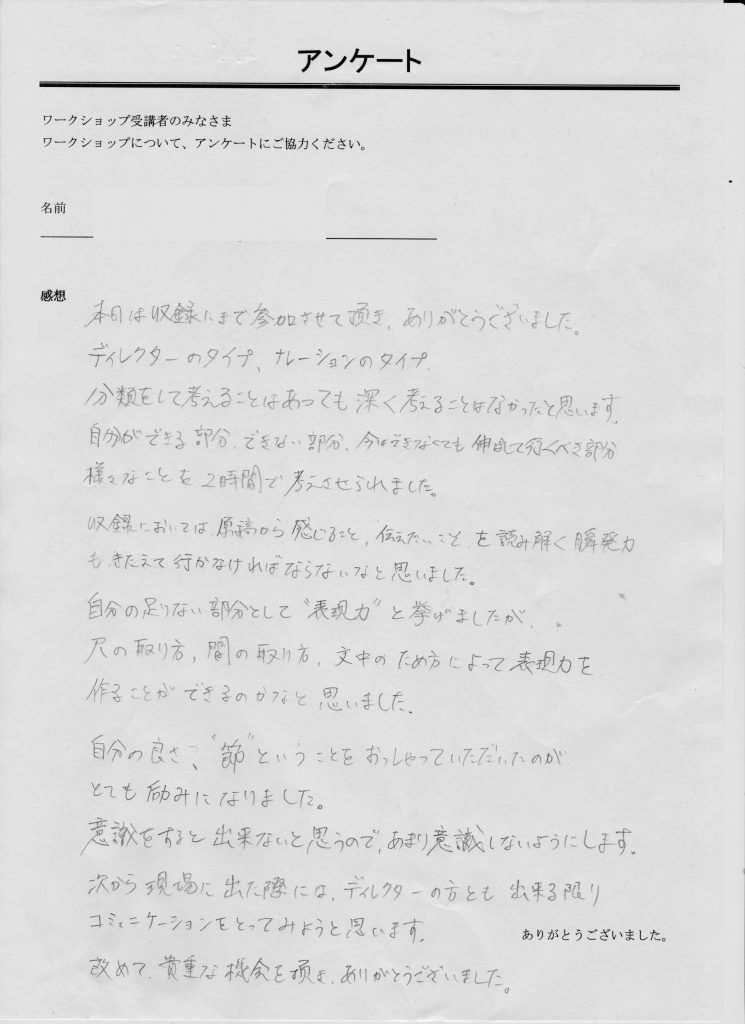 アンケート
ワークショップ受講者のみなさま
ワークショップについて、アンケートにご協力ください。
名前
感想
本日は収録にまで参加させて頂き、ありがとうございました。
ディレクターのタイプ、ナレーションのタイプ、
分類をして考えることはあっても深く考えることはなかったと思います。
自分ができる部分、できない部分、今はできなくても伸ばして行くべき部分
様々なことを2時間で考えさせられました。
収録においては、原稿から感じること、伝えたいこと、を読み解く瞬発力
もきたえて行かなければならないなと思いました。
自分の足りない部分として“表現力”と挙げましたが、
尺の取り方、間の取り方、文中のため方によって表現力を
作ることができるのかなと思いました。
自分の良さ、“節”ということをおっしゃっていただいたのが
とても励みになりました。
意識をすると出来ないと思うので、あまり意識しないようにします。
次から現場に出た際には、ディレクターの方とも出来る限り
コミュニケーションをとってみようと思います。
ありがとうございました。
改めて、貴重な機会を頂き、ありがとうございました。